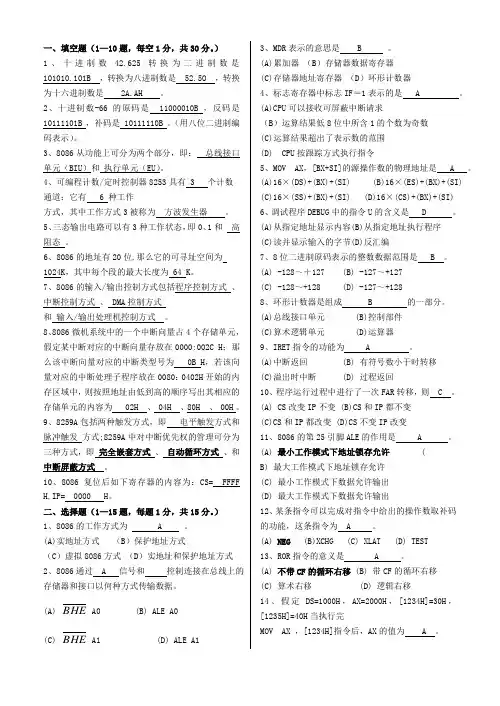 一、填空题（1—10题，每空1分，共30分。）
1、十进制数 42.625 转换为二进制数是
101010.101B ，转换为八进制数是 52.5O ，转换
为十六进制数是 2A.AH 。
2、十进制数-66 的原码是 11000010B ，反码是
10111101B ，补码是 10111110B 。（用八位二进制编
码表示）。
3、8086从功能上可分为两个部分，即： 总线接口
单元（BIU）和 执行单元（EU）。
4、可编程计数/定时控制器8253具有 3 个计数
通道；它有 6 种工作
方式，其中工作方式3被称为 方波发生器 。
5、三态输出电路可以有3种工作状态，即0、1和 高
阻态 。
6、8086的地址有20位，那么它的可寻址空间为
1024K，其中每个段的最大长度为 64 K。
7、8086的输入/输出控制方式包括程序控制方式 、
中断控制方式 、 DMA控制方式
和 输入/输出处理机控制方式 。
8、8086微机系统中的一个中断向量占4个存储单元，
假定某中断对应的中断向量存放在0000:002C H；那
么该中断向量对应的中断类型号为 0B H，若该向
量对应的中断处理子程序放在0080：0402H开始的内
存区域中，则按照地址由低到高的顺序写出其相应的
存储单元的内容为 02H 、 04H 、80H 、 00H 。
9、8259A包括两种触发方式，即 电平触发方式和
脉冲触发 方式;8259A中对中断优先权的管理可分为
三种方式，即 完全嵌套方式 、 自动循环方式 、和
中断屏蔽方式 。
10、8086复位后如下寄存器的内容为：CS= FFFF
H.IP= 0000 H。
二、选择题（1—15题，每题1分，共15分。）
1、8086的工作方式为 A 。
(A)实地址方式 （B）保护地址方式
（C）虚拟8086方式 （D）实地址和保护地址方式
2、8086通过 A 信号和 控制连接在总线上的
存储器和接口以何种方式传输数据。
(A) BHE A0 (B) ALE A0
(C) BHE A1 (D) ALE A1
3、MDR表示的意思是 B 。
(A)累加器 （B）存储器数据寄存器
(C)存储器地址寄存器 （D）环形计数器
4、标志寄存器中标志IF＝1表示的是 A 。
(A)CPU可以接收可屏蔽中断请求
（B）运算结果低8位中所含1的个数为奇数
(C)运算结果超出了表示数的范围
(D) CPU按跟踪方式执行指令
5、MOV AX，[BX+SI]的源操作数的物理地址是 A 。
(A)16×(DS)+(BX)+(SI) (B)16×(ES)+(BX)+(SI)
(C)16×(SS)+(BX)+(SI) (D)16×(CS)+(BX)+(SI)
6、调试程序DEBUG中的指令U的含义是 D 。
(A)从指定地址显示内容(B)从指定地址执行程序
(C)读并显示输入的字节(D)反汇编
7、8位二进制原码表示的整数数据范围是 B 。
(A) -128～＋127 (B) -127～+127
(C) -128～+128 (D) -127～+128
8、环形计数器是组成 B 的一部分。
(A)总线接口单元 (B)控制部件
(C)算术逻辑单元 (D)运算器
9、IRET指令的功能为 A 。
(A)中断返回 (B) 有符号数小于时转移
(C)溢出时中断 (D) 过程返回
10、程序运行过程中进行了一次FAR转移，则 C 。
(A) CS改变IP不变 (B)CS和IP都不变
(C)CS和IP都改变 (D)CS不变IP改变
11、8086的第25引脚ALE的作用是 A 。
(A) 最小工作模式下地址锁存允许 (
B) 最大工作模式下地址锁存允许
(C) 最小工作模式下数据允许输出
(D) 最大工作模式下数据允许输出
12、某条指令可以完成对指令中给出的操作数取补码
的功能，这条指令为 A 。
(A) NEG (B)XCHG (C) XLAT (D) TEST
13、ROR指令的意义是 A 。
(A) 不带CF的循环右移 (B) 带CF的循环右移
(C) 算术右移 (D) 逻辑右移
14 。假定 DS=1000H，AX=2000H，[1234H]=30H，
[1235H]=40H当执行完
MOV AX ,[1234H]指令后，AX的值为 A 。